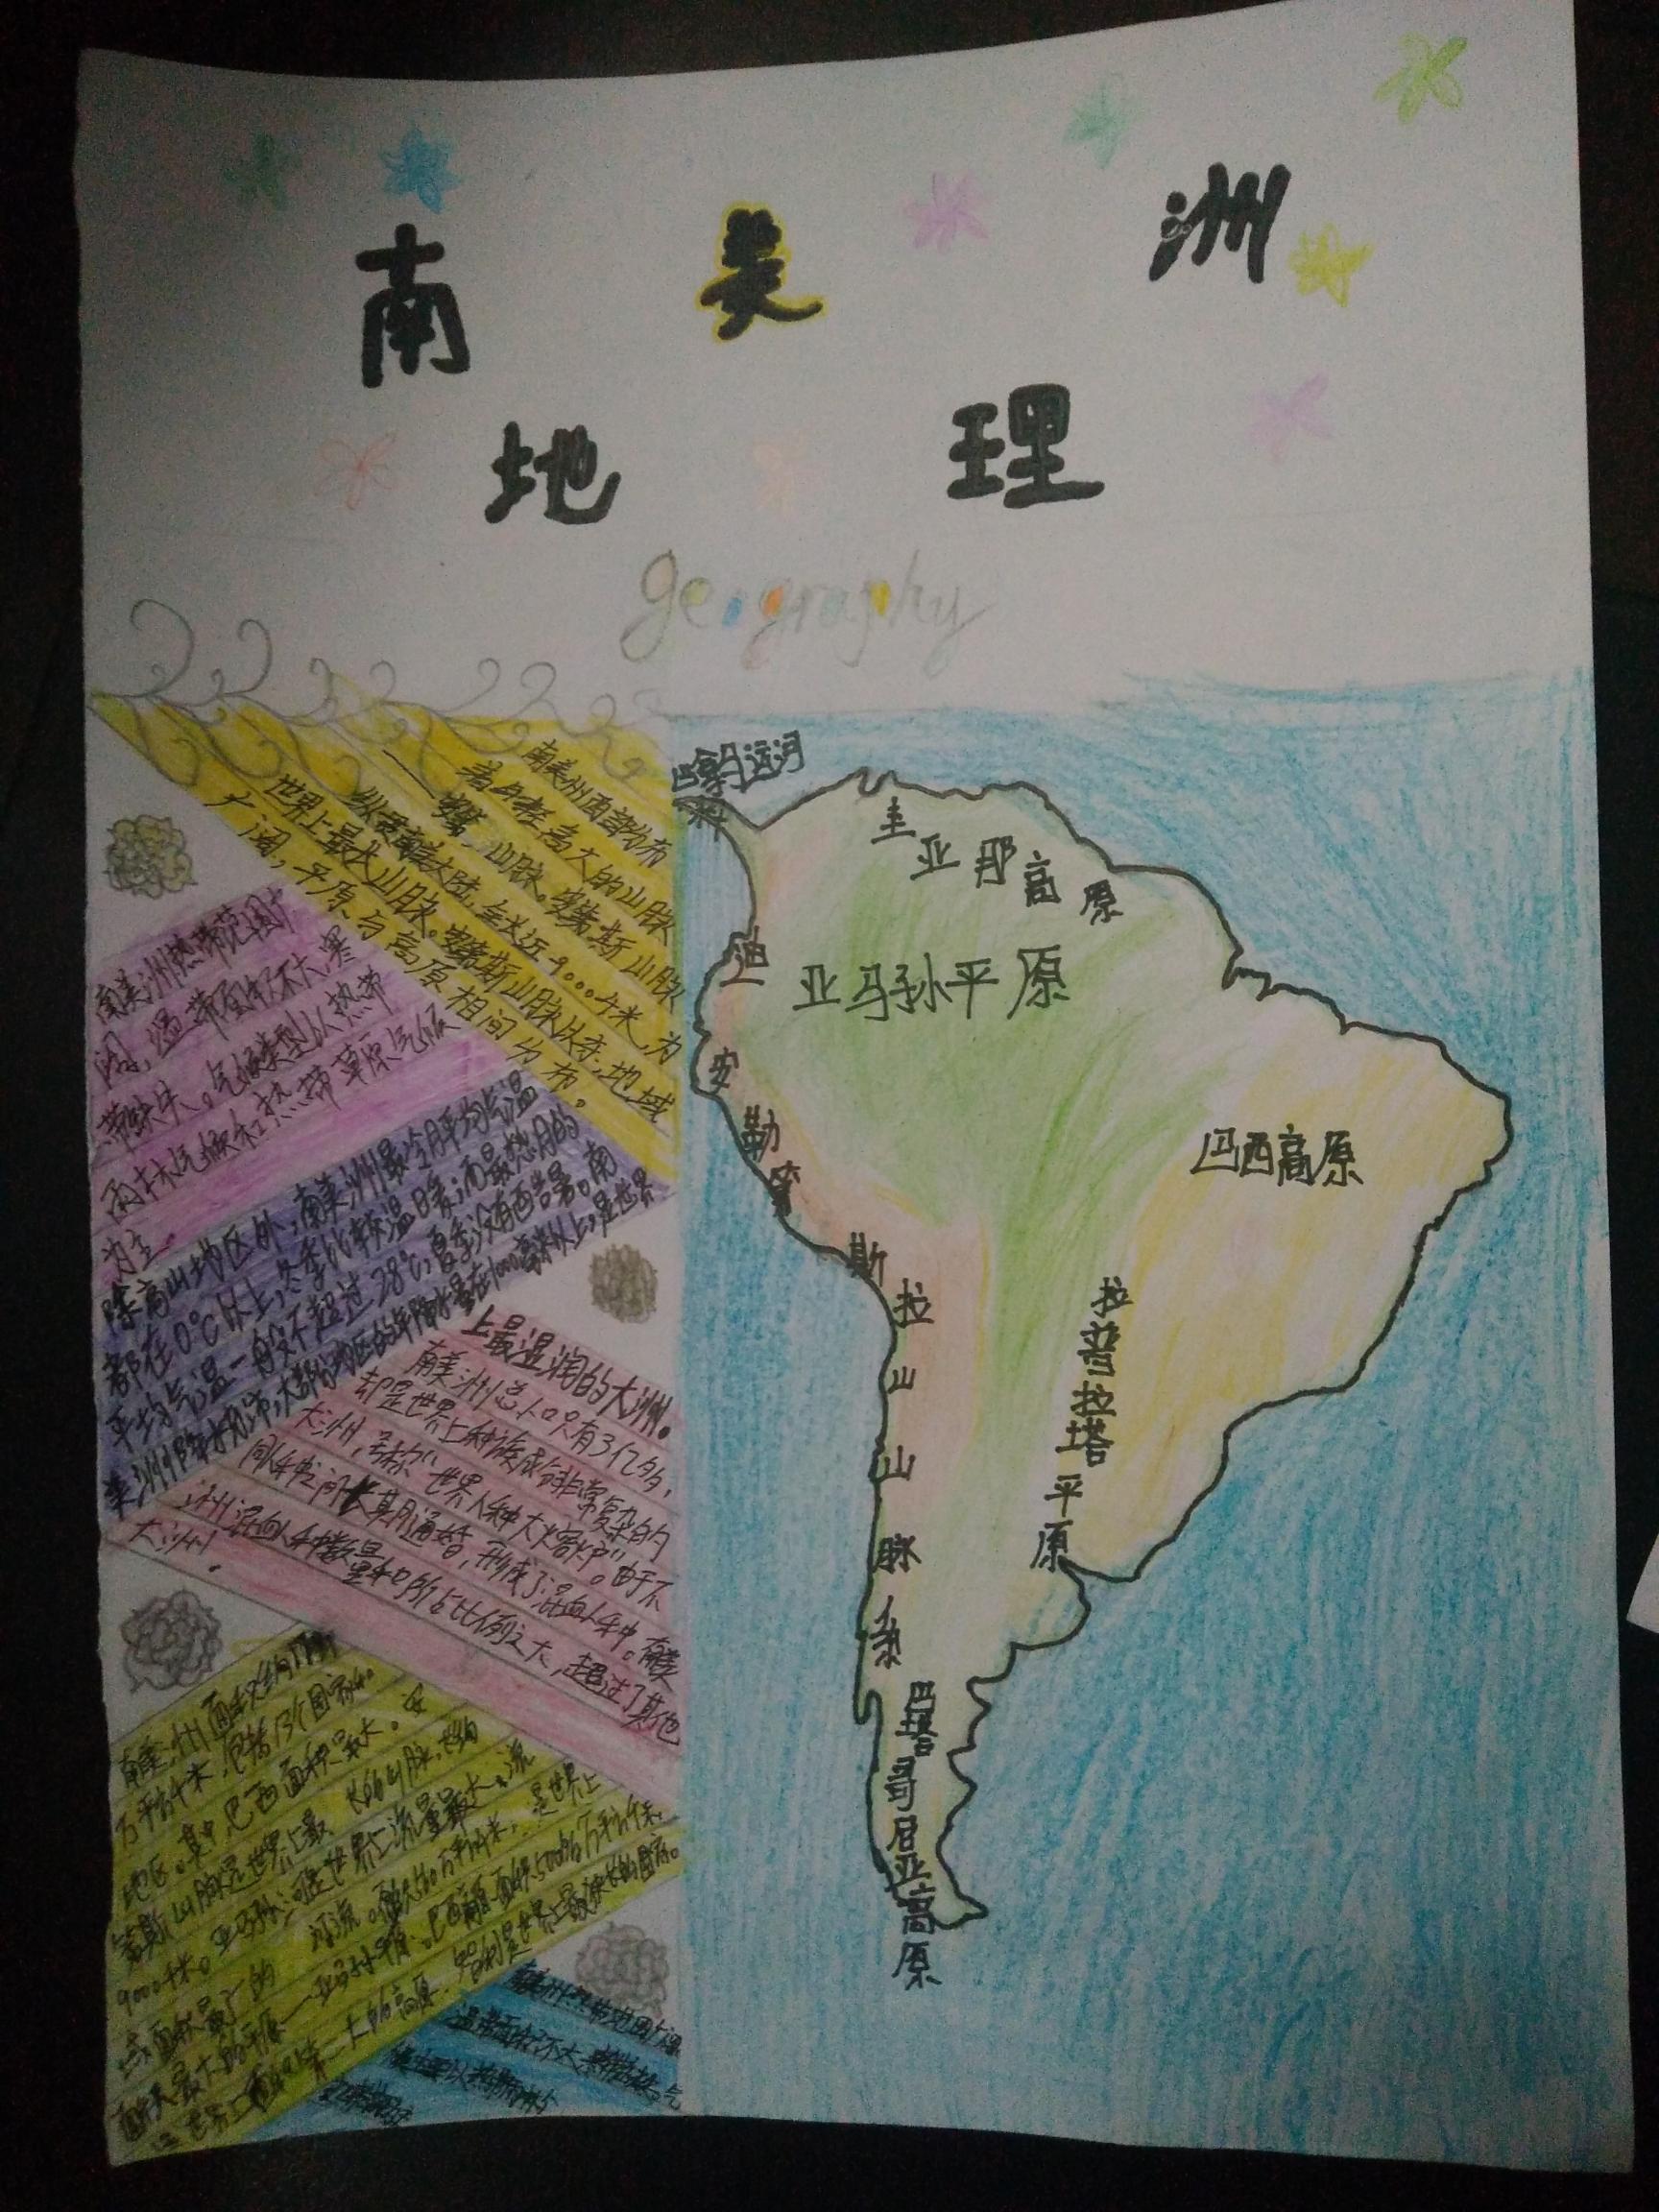 南 美 洲
地 理
geography
南美州西部分布
着高耸高大的山脉
山脉。安第斯山脉
纵贯南美大陆,全长近9000千米,为
世界上最长山脉。安第斯山脉以东,地域
广阔,平原与高原相间分布。
南美洲热带范围广
阔,温带面积不大,寒
带缺失。气候类型以热带
雨林气候和热带草原气候
为主。
除高山地区外,南美洲最冷月平均气温
都在0°C以上,冬季比较温暖;而最热月的
平均气温一般不超过28°C,夏季没有酷暑。南
美洲降水充沛,大部分地区的年降水量在1000毫米以上,是世界
上最湿润的大洲。
南美洲总人口只有3亿多,
却是世界上种族成分非常复杂的
大洲,号称“世界人种大熔炉”。由于不
同人种之间长期通婚,形成了混血人种。南美
洲混血人种数量和所占比例之大,超过了其他
大洲.
南美洲面积约
万平方千米,包括13个国家和
地区。其中,巴西面积最大。安
第斯山脉是世界上最长的山脉,长约
9000千米。亚马孙河是世界上流量最大、流
域面积最广的河流。面积560万平方千米,是世界上
面积最大的平原——亚马孙平原;巴西高原面积500多万平方千米,
是世界上面积第二大的高原。智利是世界上最狭长的国家。
南美州热带范围广阔
温带面积不大,寒带缺失。气
候主要以热带雨林
巴拿马运河
圭亚那高原
亚马孙平原
巴西高原
安
第
斯
山
脉
拉普拉塔平原
巴塔哥尼亚高原